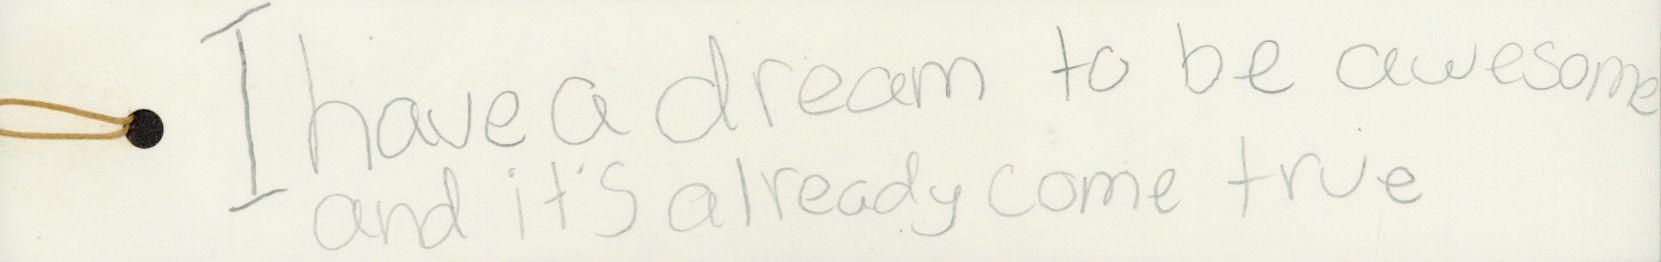 I have a dream to be awesome
and it's already come true